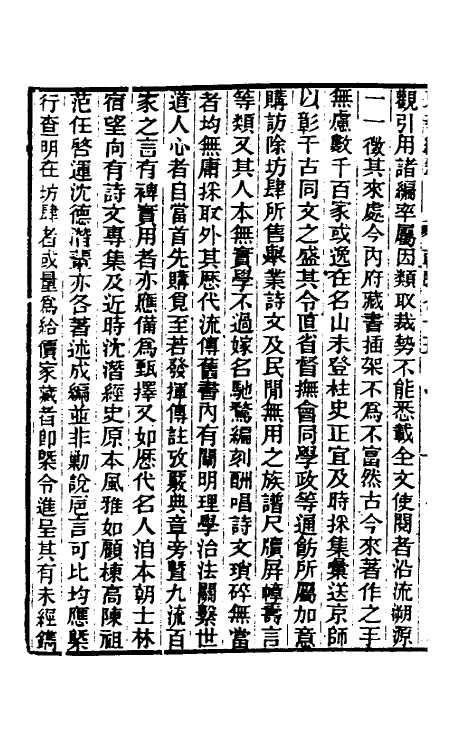 觀引用諸編率屬因類取裁勢不能悉載全文使閱者沿流溯源
一一徵其來處今內府藏書插架不為不富然古今來著作之手
無慮數千百家或逸在名山未登柱史正宜及時採集彙送京師
以彰千古同文之盛其令直省督撫會同學政等通飭所屬加意
購訪除坊肆所售舉業詩文及民閒無用之族譜尺牘屏幛壽言
等類又其人本無實學不過嫁名馳騖編刻酬唱詩文瑣碎無當
者均無庸採取外其歷代流傳舊書內有闡明理學治法關繫世
道人心者自當首先購覓至若發揮傳註攷覈典章旁暨九流百
家之言有裨實用者亦應備為甄擇又如歷代名人洎本朝士林
宿望向有詩文專集及近時沈潛經史原本風雅如顧棟高陳祖
范任啓運沈德潛輩亦各著述成編並非勦說巵言可比均應槩
行查明在坊肆者或量為給價家藏者卽槩令進呈其有未經鐫